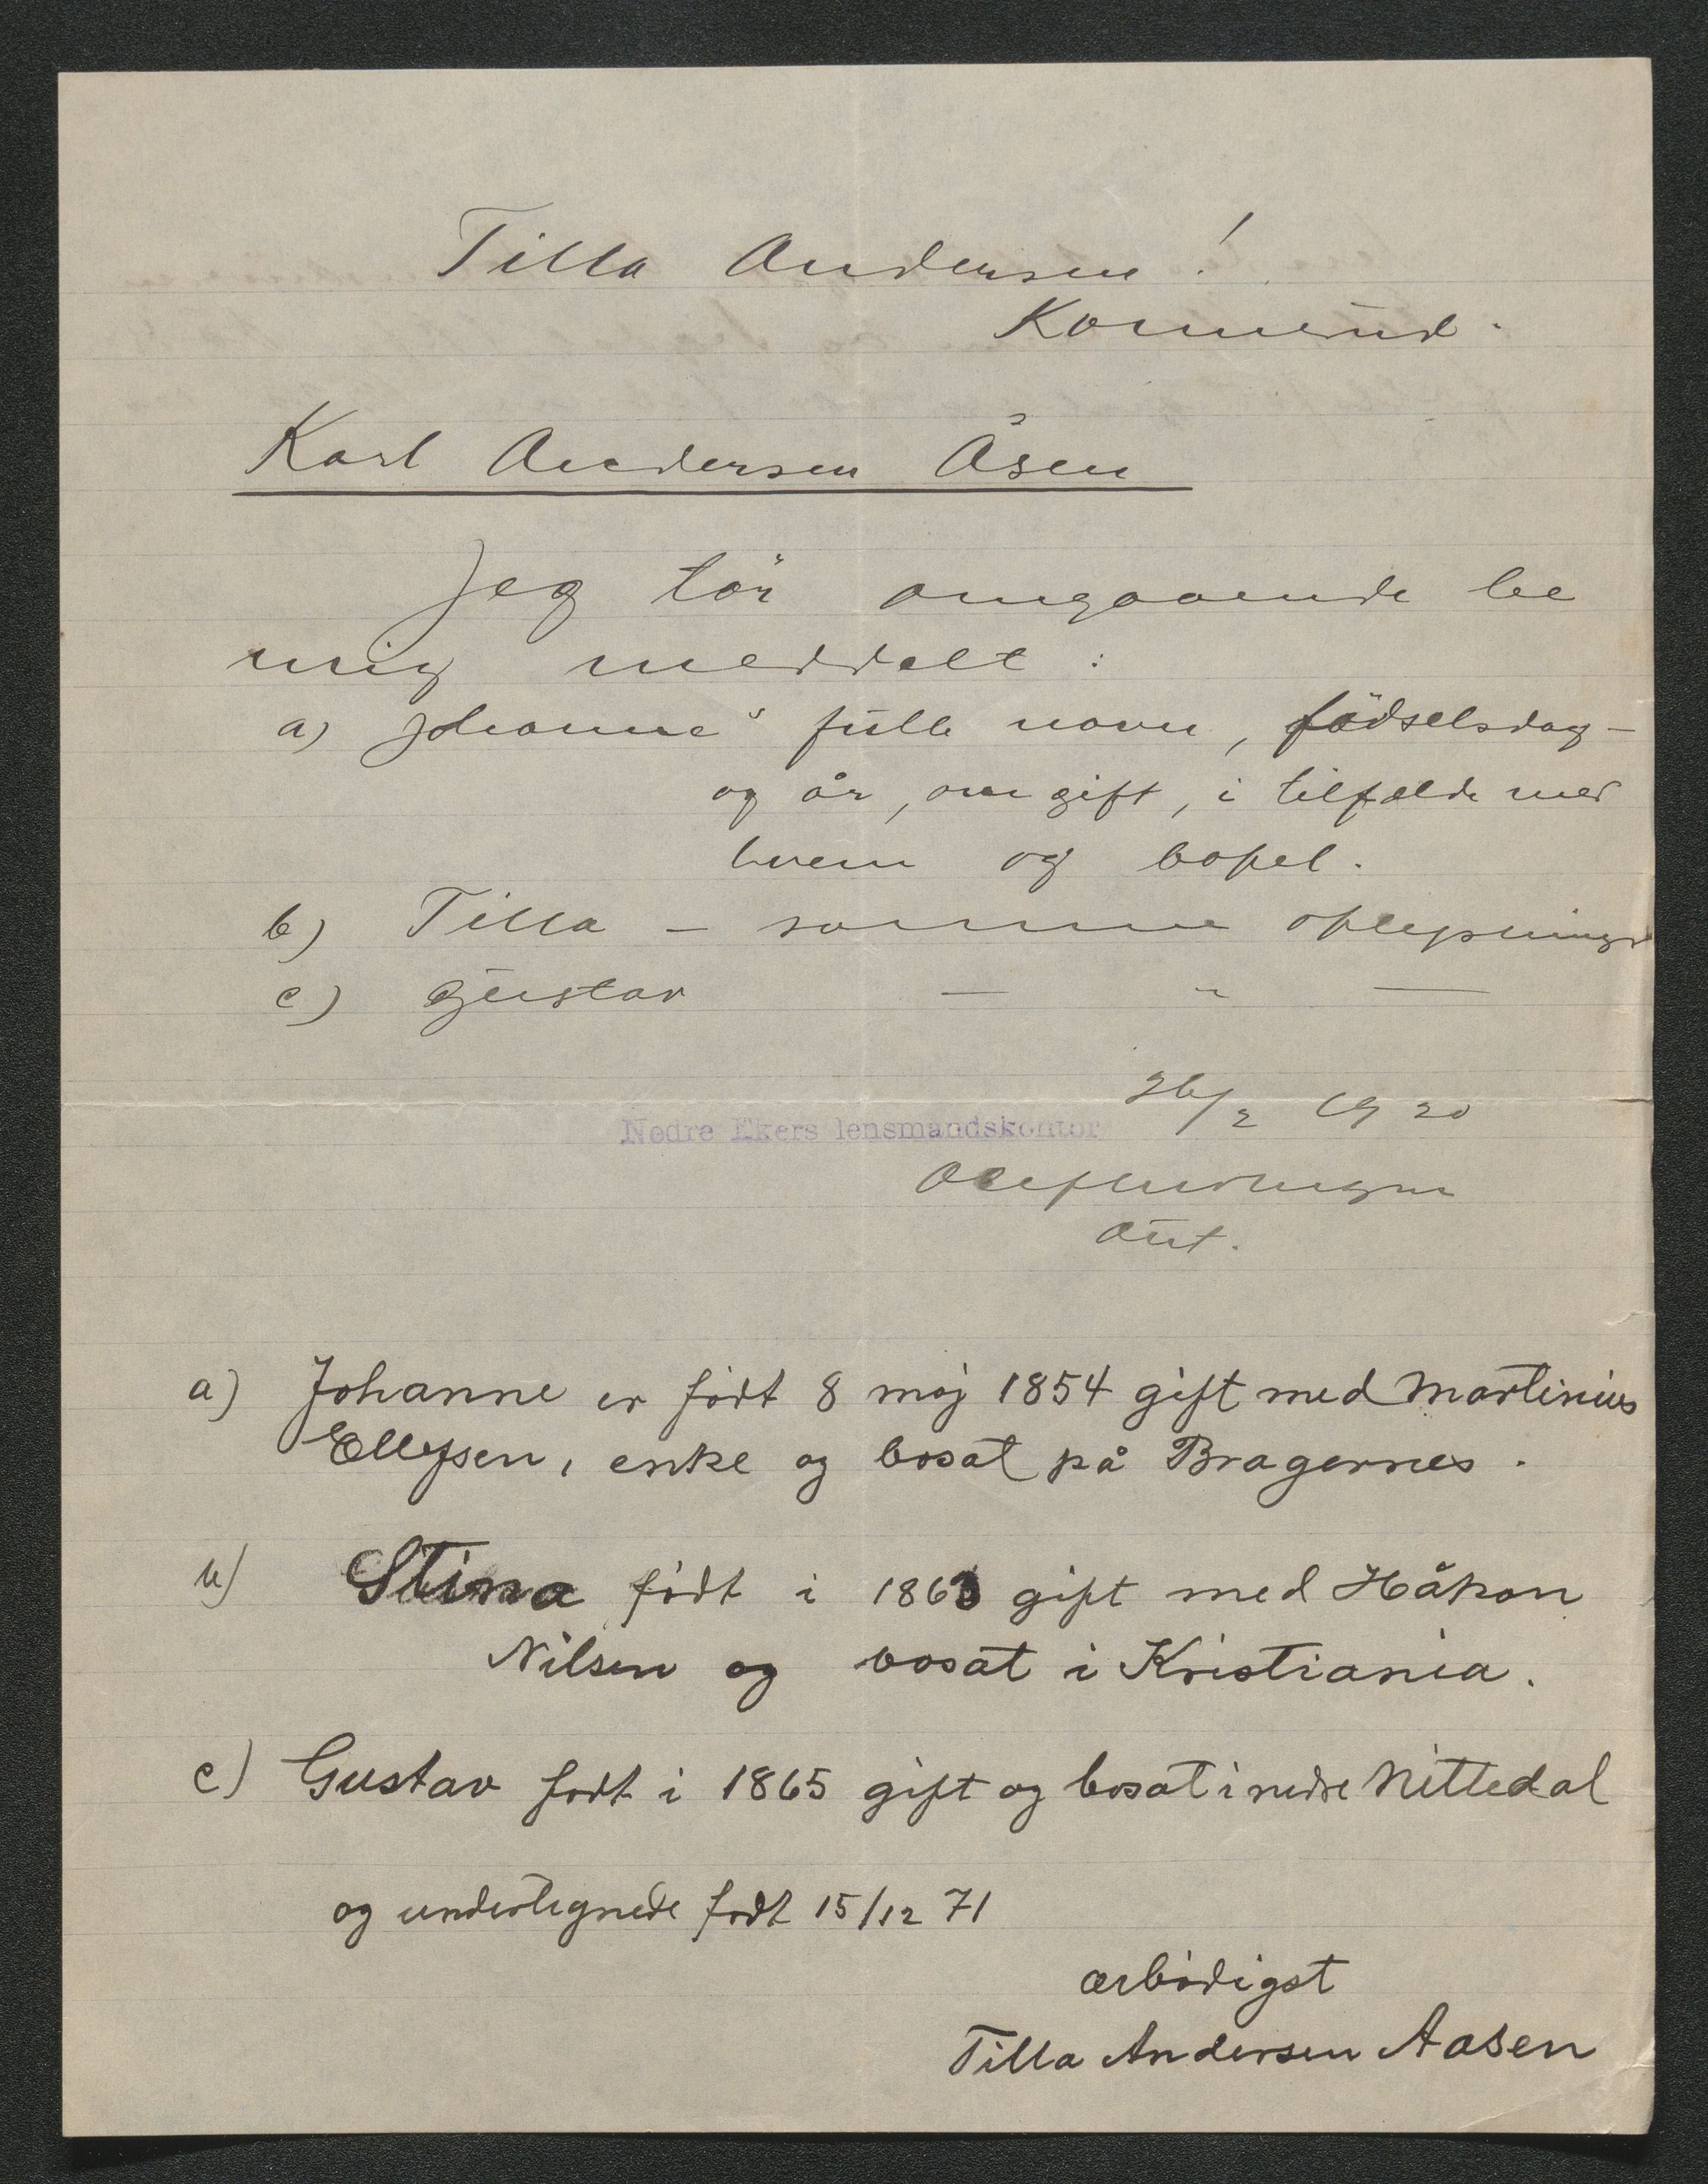 Tilla Andersen!
Kornmind.
Karl Andersen Åsen
Jeg tör omgaaende be
mig meddelt:
a) Johanne's fulle navn, födselsdag -
og år, om gift, i tilfælde med
hvem og bopel.
b) Tilla - samme oplysninger
c) Gustav — " —
26/2 1920
Nedre Ekers lensmandskontor
aut.
a) Johanne er født 8 maj 1854 gift med Martinius
Ellefsen, enke og bosat på Bragernes.
b) Stina født i 1863 gift med Håkon
Nilsen og bosat i Kristiania.
c) Gustav født i 1865 gift og bosat i nedre Nittedal
og undertegnede født 15/12 71
ærbödigst
Tilla Andersen Aasen